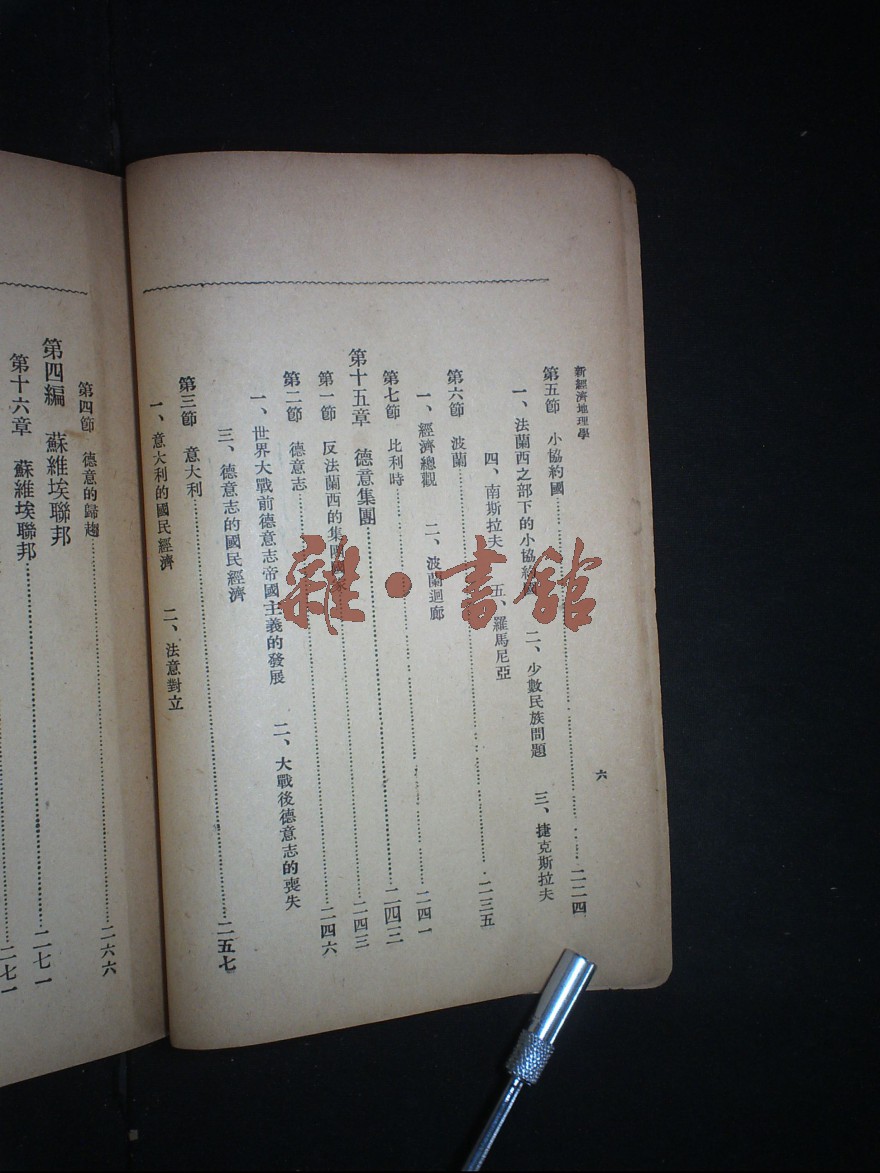 新經濟地理學 六
第五節 小協約國 二二四
一、法蘭西之部下的小協約國 二、少數民族問題 三、捷克斯拉夫
四、南斯拉夫 五、羅馬尼亞
第六節 波蘭 二三五
一、經濟總觀 二、波蘭迴廊
第七節 比利時 二四一
第十五章 德意集團 二四三
第一節 反法蘭西的集團 二四三
第二節 德意志 二四六
一、世界大戰前德意志帝國主義的發展 二、大戰後德意志的喪失
三、德意志的國民經濟
第三節 意大利 二五七
一、意大利的國民經濟 二、法意對立
第四節 德意的歸趨 二六六
第四編 蘇維埃聯邦
第十六章 蘇維埃聯邦 二七一
二七一
雜·書館